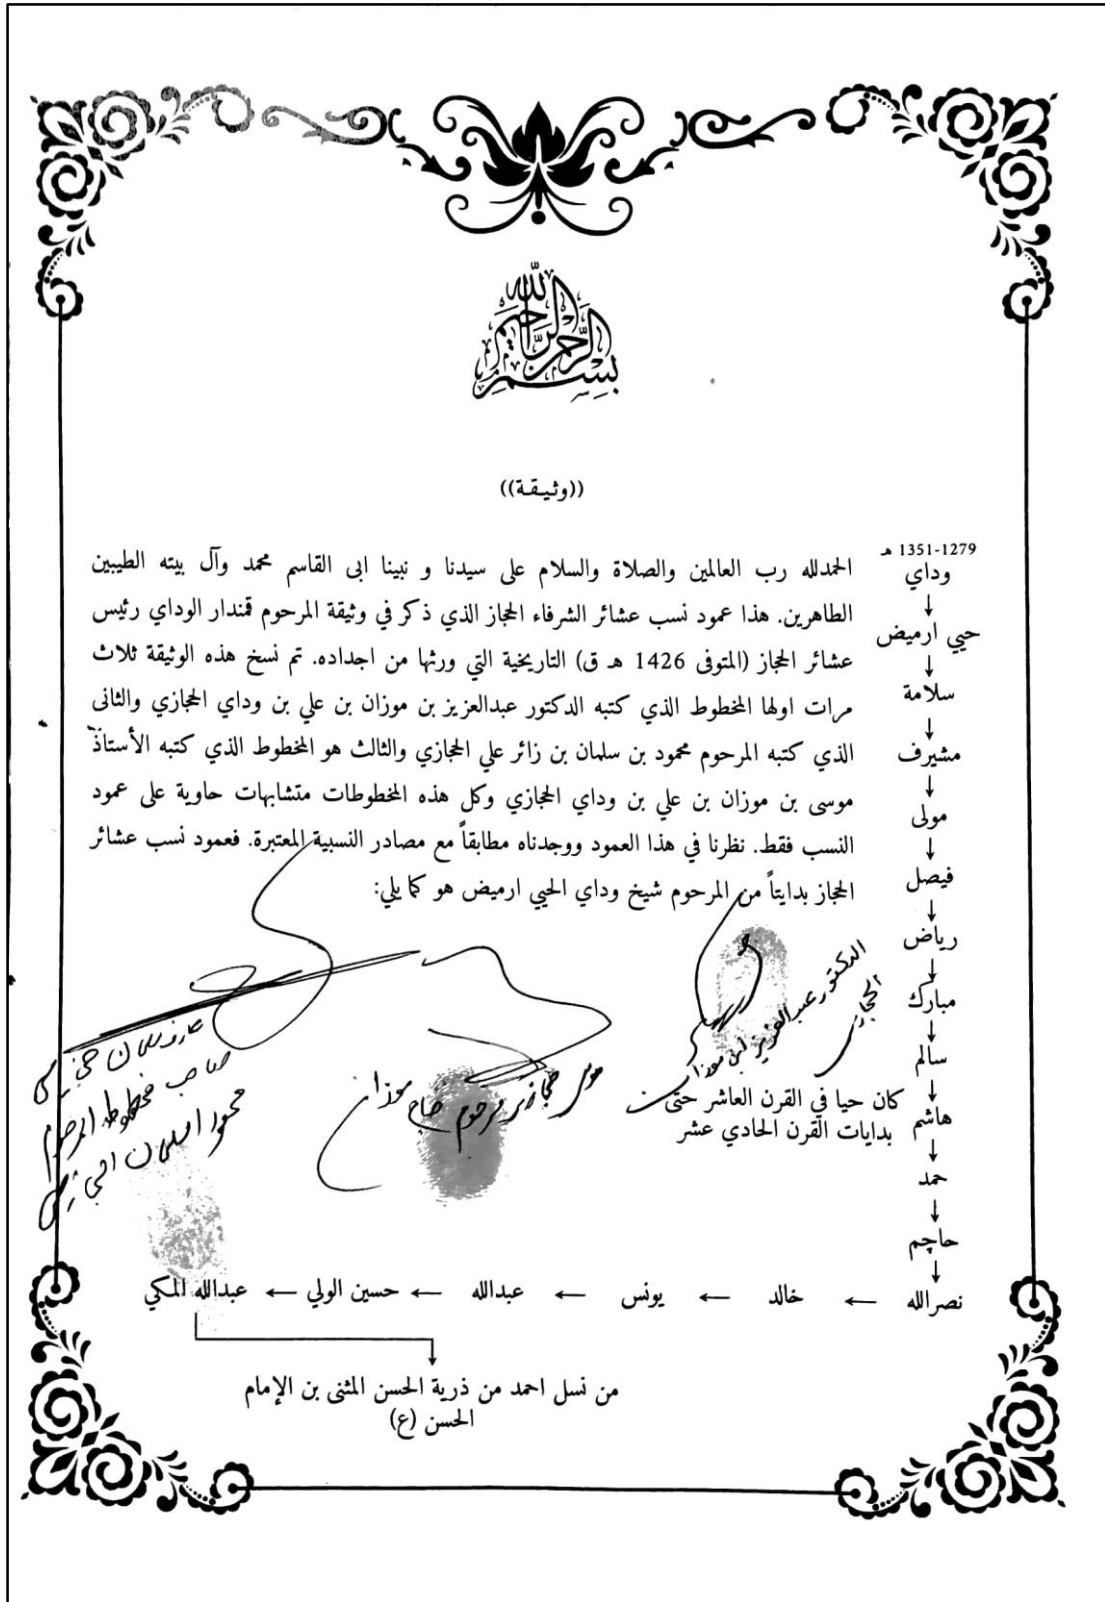 بسم الله الرحمن الرحيم
((وثيقة))
الحمدلله رب العالمين والصلاة والسلام على سيدنا و نبينا ابى القاسم محمد وآل بيته الطيبين
الطاهرين. هذا عمود نسب عشائر الشرفاء الحجاز الذي ذكر في وثيقة المرحوم قمندار الوداي رئيس
عشائر الحجاز (المتوفى 1426 هـ ق) التاريخية التي ورثها من اجداده. تم نسخ هذه الوثيقة ثلاث
مرات اولها المخطوط الذي كتبه الدكتور عبدالعزيز بن موزان بن علي بن وداي الحجازي والثانى
الذي كتبه المرحوم محمود بن سلمان بن زائر علي الحجازي والثالث هو المخطوط الذي كتبه الأستاذ
موسى بن موزان بن علي بن وداي الحجازي وكل هذه المخطوطات متشابهات حاوية على عمود
النسب فقط. نظرنا في هذا العمود ووجدناه مطابقاً مع مصادر النسبية المعتبرة. فعمود نسب عشائر
الحجاز بدايتاً من المرحوم شيخ وداي الحيي ارميض هو كما يلي:
1351-1279 هـ
وداي
↓
حيي ارميض
↓
سلامة
↓
مشيرف
↓
مولى
↓
فيصل
↓
رياض
↓
مبارك
↓
سالم
↓
هاشم
كان حيا في القرن العاشر حتى
بدايات القرن الحادي عشر
↓
حمد
↓
حاچم
↓
نصرالله ← خالد ← يونس ← عبدالله ← حسين الولي ← عبدالله المكي
من نسل احمد من ذرية الحسن المثنى بن الإمام
الحسن (ع)
الدكتور عبدالعزيز ابن موزان
الحجازي
موسى حجازي مرحوم حاج موزان
صاحب مخطوط المرحوم
محمود سلمان الحجازي